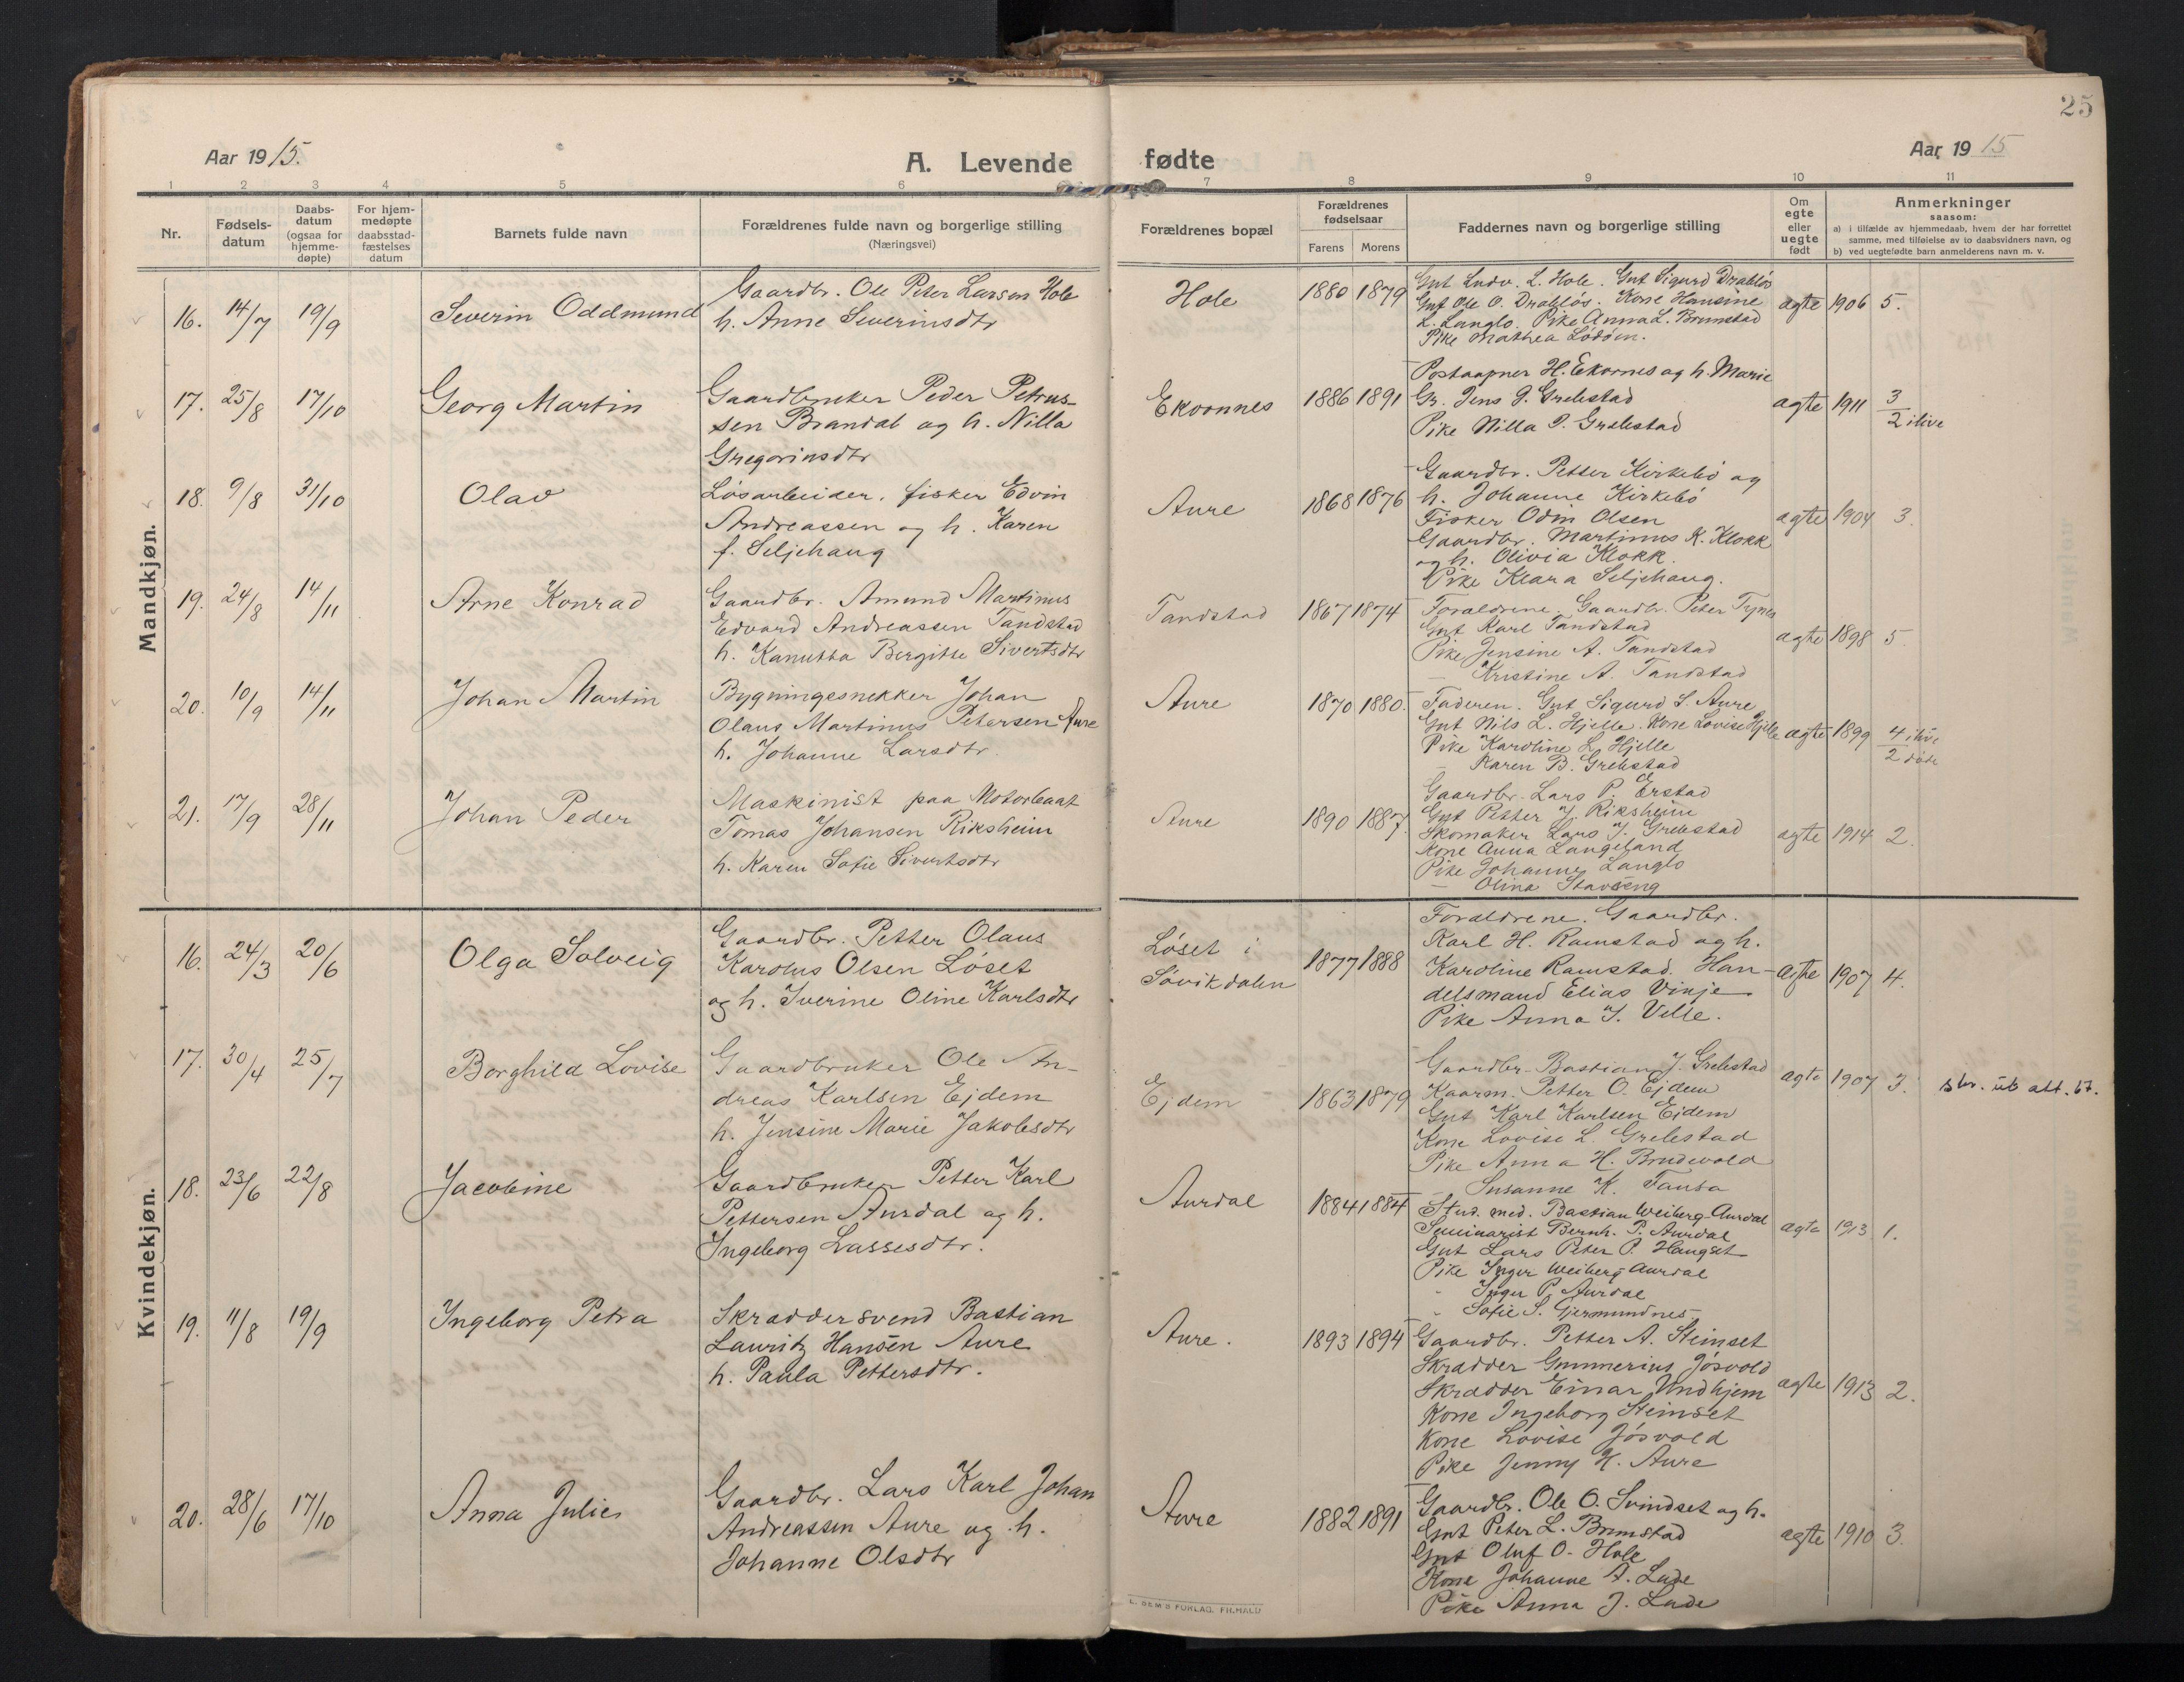 25
Aar 1915.
A. Levende
fødte
Aar 1915
1 2 3 4 5 6 7 8 9 10 11
Nr.
Fødsels-
datum
Daabs-
datum
(ogsaa for
hjemme-
døpte)
For hjem-
medøpte
daabsstad-
fæstelses
datum
Barnets fulde navn
Forældrenes fulde navn og borgerlige stilling
(Næringsvei)
Forældrenes bopæl
Forældrenes
fødselsaar
Farens Morens
Faddernes navn og borgerlige stilling
Om
egte
eller
uegte
født
Anmerkninger
saasom:
a) i tilfælde av hjemmedaab, hvem der har forrettet
samme, med tilføielse av to daabsvidners navn, og
b) ved uegtefødte barn anmelderens navn m. v.
Mandkjøn.
16. 14/7 19/9 Severin Oddmund
Gaardbr. Ole Peter Larsen Hole
h. Anne Severinsdtr
Hole 1880 1879
Gut Ludv. L. Hole. Gut Sigurd Drabløs
Gut Ole O. Drabløs. Kone Hansine
L. Langlo. Pike Anna L. Brunstad
Pike Mathea Lødøen.
ægte 1906 5.
17. 25/8 17/10 Georg Martin
Gaardbruker Peder Petrus-
sen Brandal og h. Nilla
Gregoriusdtr
Ekornnes 1886 1891
Postaapner H. Ekornes og h. Marie
Gr. Jens J. Grebstad
Pike Nilla J. Grebstad
ægte 1911 3
2 ilive
18. 9/8 31/10 Olav
Løsarbeider, fisker Edvin
Andreassen og h. Karen
f. Seljehaug
Aure 1868 1876
Gaardbr. Petter Kirkebø og
h. Johanne Kirkebø
Fisker Odin Olsen
Gaardbr. Martinus K. Klokk
og h. Olivia Klokk.
Pike Klara Seljehaug.
ægte 1904 3.
19. 24/8 14/11 Arne Konrad
Gaardbr. Amund Martinus
Edvard Andreassen Tandstad
h. Kanutta Bergitte Sivertsdtr
Tandstad 1867 1874
Forældrene. Gaardbr. Peter Tynes
Gut Karl Tandstad
Pike Jensine A. Tandstad
— Kristine A. Tandstad
ægte 1898 5
20. 10/9 14/11 Johan Martin
Bygningssnekker Johan
Olaus Martinus Petersen Aure
h. Johanne Larsdtr.
Aure 1870 1880.
Faderen. Gut Sigurd S. Aure
Gut Nils L. Hjelle. Kone Lovise Hjelle
Pike Karoline L. Hjelle
— Karen B. Grebstad
ægte 1899 4 ilive
2 døde
21. 17/9 28/11 Johan Peder
Maskinist paa Motorbaat
Tomas Johansen Riksheim
h. Karen Sofie Sivertsdtr
Aure 1890 1887.
Gaardbr. Lars P. Erstad
Gut Petter J. Riksheim
Skomaker Lars J. Grebstad
Kone Anna Langeland
Pike Johanne Langlo
— Olina Stavseng
ægte 1914 2.
Kvindekjøn.
16. 24/3 20/6 Olga Solveig
Gaardbr. Petter Olaus
Karolus Olsen Løset
og h. Iverine Oline Karlsdtr
Løset i
Søvikdalen 1877 1888
Forældrene. Gaardbr.
Karl H. Ramstad og h.
Karoline Ramstad. Han-
delsmand Elias Vinje
Pike Anna J. Velle.
ægte 1907 4.
17. 30/4 25/7 Borghild Lovise
Gaardbruker Ole An-
dreas Karlsen Ejdem
h. Jensine Marie Jakobsdtr
Ejdem 1863 1879
Gaardbr. Bastian J. Grebstad
Kaarm. Petter O. Ejdem
Gut Karl Karlsen Eidem
Kone Lovise L. Grebstad
Pike Anna H. Brudevold
— Susanne K. Tausa
ægte 1907 3. skr. ut att. 67.
18. 23/6 22/8 Jacobine
Gaardbruker Petter Karl
Pettersen Aurdal og h.
Ingeborg Lassesdtr.
Aurdal 1884 1884
Stud. med. Bastian Weiberg-Aurdal
Seminarist Bernh. P. Aurdal
Gut Lars Peter P. Haugset
Pike Inger Weiberg-Aurdal
" Inger P. Aurdal
" Sofie S. Gjermundnes.
ægte 1913 1.
19. 11/8 19/9 Ingeborg Petra
Skræddersvend Bastian
Lauritz Hansen Aure
h. Paula Pettersdtr.
Aure. 1893 1894
Gaardbr. Petter A. Steinset
Skrædder Gunnerius Jøsvold
Skrædder Einar Undhjem
Kone Ingeborg Steinset
Kone Lovise Jøsvold
Pike Jenny H. Aure
ægte 1913 2.
20. 28/6 17/10 Anna Julie
Gaardbr. Lars Karl Johan
Andreassen Aure og h.
Johanne Olsdtr
Aure 1882 1891
Gaardbr. Ole O. Svindset og h.
Gut Peter L. Brunstad
Gut Oluf O. Hole
Kone Johanne A. Lade
Pike Anna J. Lade
ægte 1910 3.
E. SEM'S FORLAG, FR.HALD